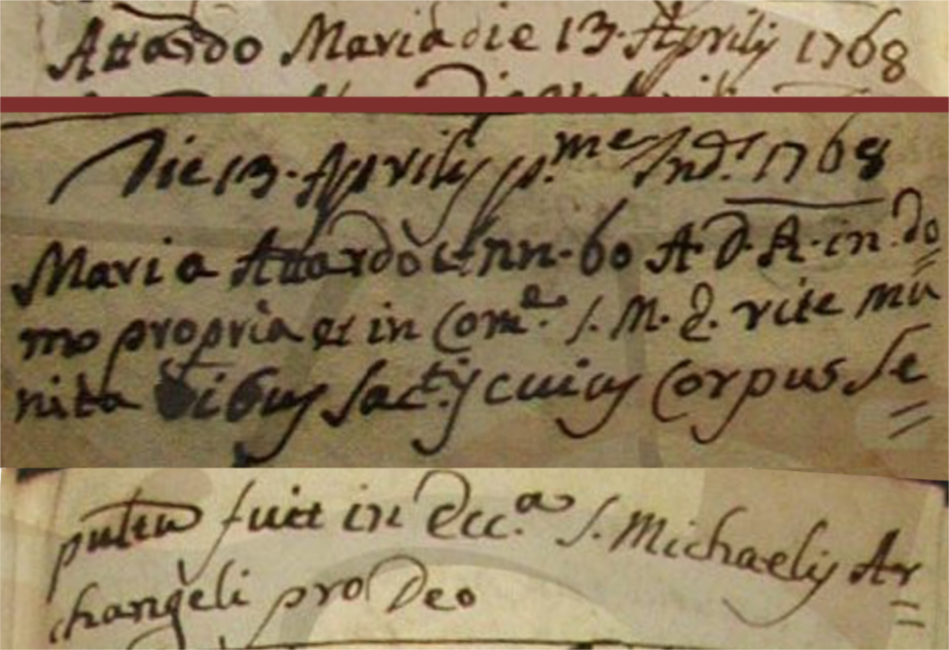 Attardo Maria die 13. Aprilis 1768
Die 13. Aprilis p.me Ind. 1768
Maria Attardo Ann. 60 A. D. A. in do=
mo propria et in Com.e S. M. E. rite mu
nita tibus Sac.tis cuius Corpus Se=
pultu fuit in Ecc.a S. Michaelis Ar=
changeli pro Deo